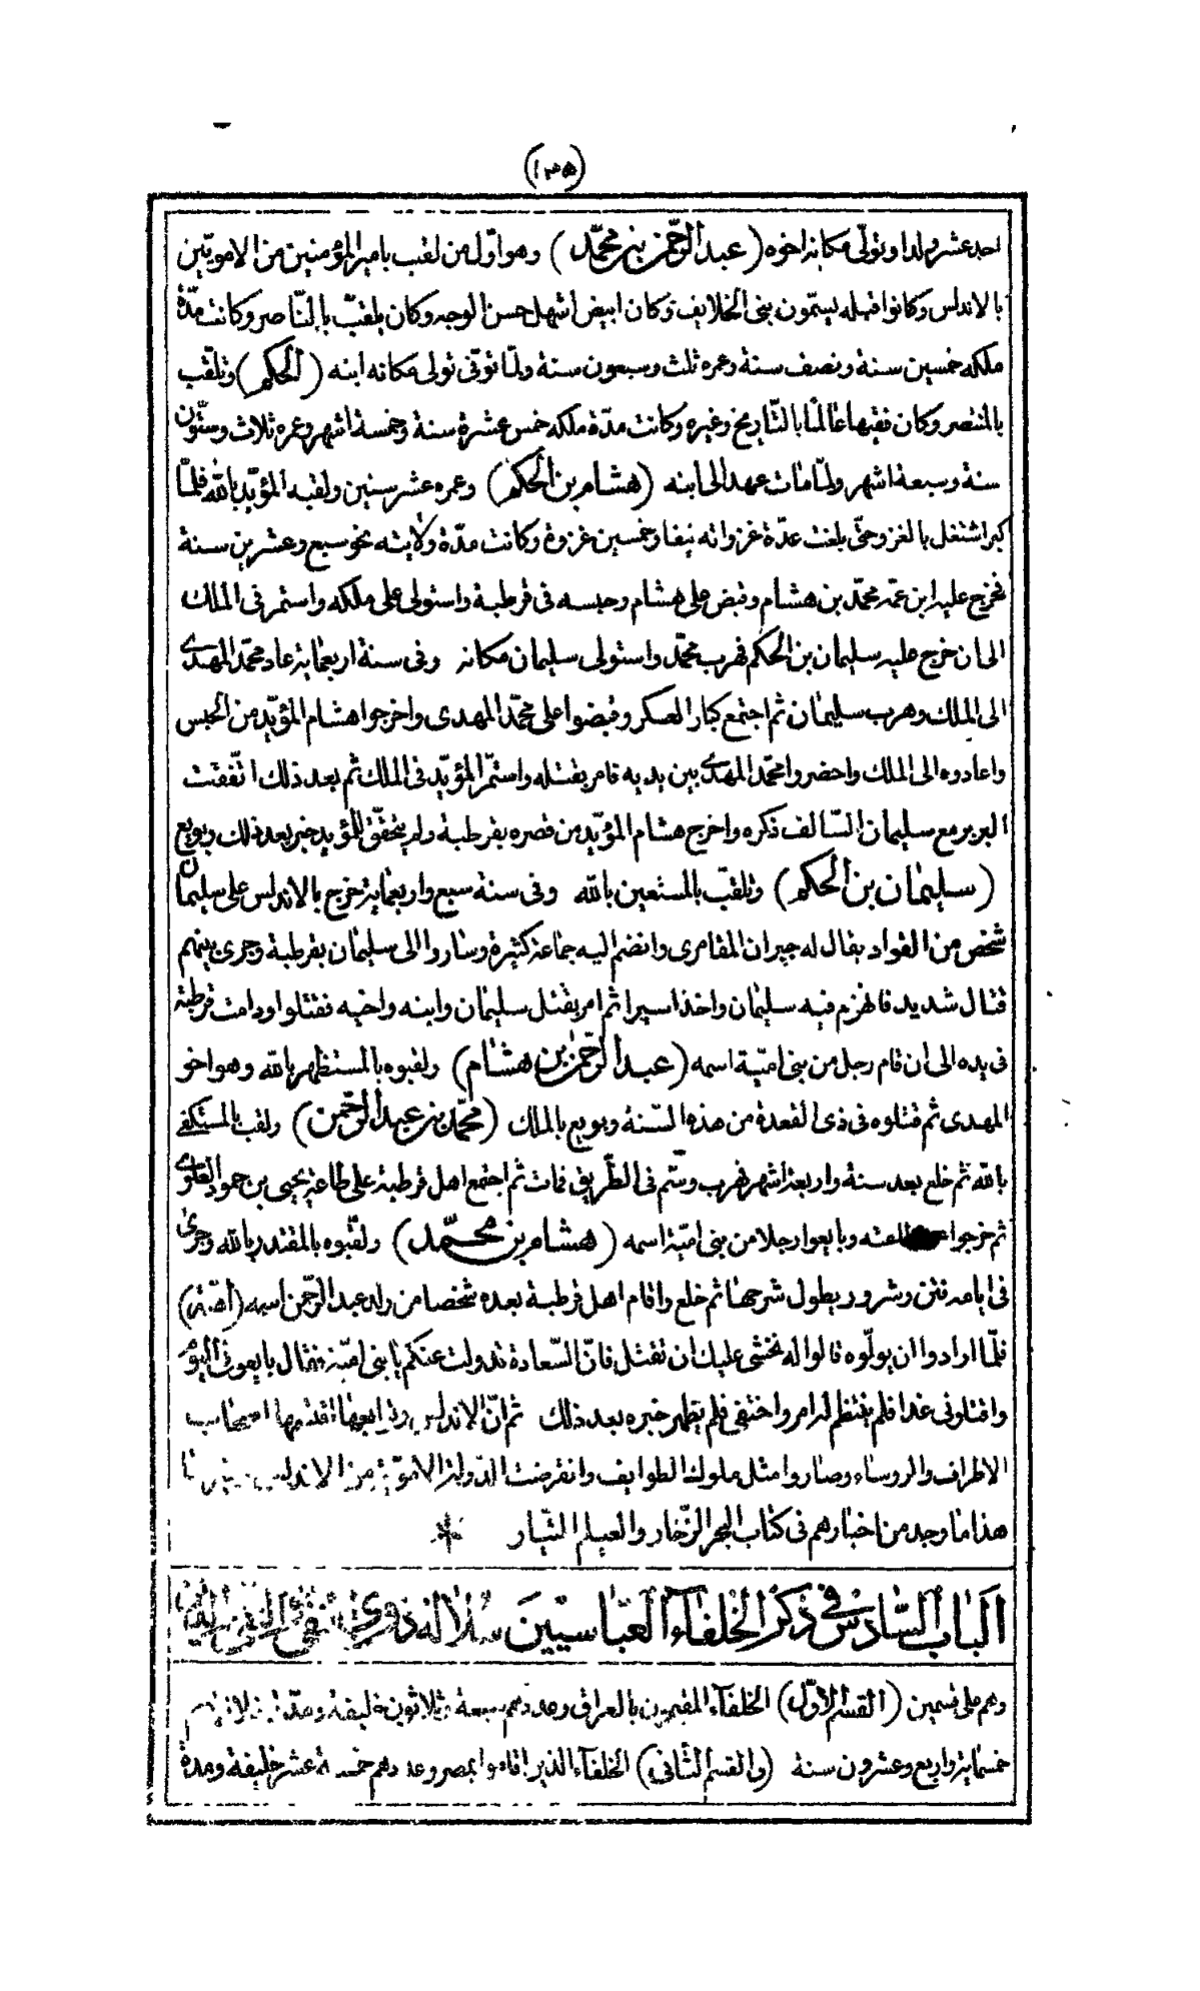 (١٣٥)
احد عشر ولدا وتولّى مكانه اخوه (عبد الرّحمن بن محمّد) وهو اوّل من لقب بامير المؤمنين من الامويّين
بالاندلس وكانوا قبله يسمّون بنى الخلايف وكان ابيض اشهل حسن الوجه وكان يلقب بالنّاصر وكانت مدّة
ملكه خمسين سنة ونصف سنة وعمره ثلث وسبعون سنة ولمّا توفّى تولى مكانه ابنه (الحكم) وتلقّب
بالمنتصر وكان فقيها عالما بالتّاريخ وغيره وكانت مدّة ملكه خمس عشرة سنة وخمسة اشهر وعمره ثلاث وستّون
سنة وسبعة اشهر ولمّا مات عهد الى ابنه (هشام بن الحكم) وعمره عشر سنين ولقبه المؤيّد بالله فلمّا
كبر اشتغل بالغزو حتّى بلغت عدّة غزواته نيفا وخمسين غزوة وكانت مدّة ولايته نحو سبع وعشرين سنة
فخرج عليه ابن عمّه محمّد بن هشام وقبض على هشام وحبسه فى قرطبة واستولى على ملكه واستمر فى الملك
الى ان خرج عليه سليمان بن الحكم فهرب محمّد واستولى سليمان مكانه وفى سنة اربعماية عاد محمّد المهدى
الى الملك وهرب سليمان ثم اجتمع كبار العسكر وقبضوا على محمّد المهدى واخرجوا هشام المؤيّد من الحبس
واعادوه الى الملك واحضروا محمّد المهدى بين يديه فامر بقتله واستمرّ المؤيّد فى الملك ثم بعد ذلك اتّفقت
البربر مع سليمان السّالف ذكره واخرج هشام المؤيّد من قصره بقرطبة ولم يتحقّق للمؤيد خبر بعد ذلك وبويع
(سليمان بن الحكم) وتلقّب بالمستعين بالله وفى سنة سبع واربعماية خرج بالاندلس على سليمان
شخص من القواد يقال له جيران المقامرى وانضم اليه جماعة كثيرة وساروا الى سليمان بقرطبة وجرى بينهم
قتال شديد فانهزم فيه سليمان واخذ اسيرا ثم امر بقتل سليمان وابنه واخيه فقتلوا ودامت قرطبة
فى يده الى ان قام رجل من بنى اميّة اسمه (عبد الرّحمن بن هشام) ولقبوه بالمستظهر بالله وهو اخو
المهدى ثم قتلوه فى ذى القعدة من هذه السّنة وبويع بالملك (محمّد بن عبد الرّحمن) ولقب بالمستكفى
بالله ثم خلع بعد سنة واربعة اشهر فهرب وسّم فى الطّريق فمات ثم اجتمع اهل قرطبة على طاعة يحيى بن حمود العلوى
ثم خرجوا طاعته وبايعوا رجلا من بنى اميّة اسمه (هشام بن محمّد) ولقّبوه بالمقتدر بالله وجرى
فى ايامه فتن وشرور يطول شرحها ثم خلع واقام اهل قرطبة بعده شخصا من ولد عبد الرّحمن اسمه (اميّة)
فلمّا ارادوا ان يولّوه قالوا له نخشى عليك ان تقتل فانّ السّعادة قد ولت عنكم يا بنى اميّة فقال بايعونى اليوم
واقتلونى غدا فلم ينتظم له امر واختفى فلم يظهر خبره بعد ذلك ثم انّ الاندلس اقتسمها اصحاب
الاطراف والروساء وصاروا مثل ملوك الطوايف وانقرضت الدّولة الامويّة من الاندلس
هذا ما وجد من اخبارهم فى كتاب البحر الزّخار والعيلم التّيار *
الباب السّادس فى ذكر الخلفاء العبّاسيّين سلالة ذوى
وهم على قسمين (القسم الاوّل) الخلفاء المقيمون بالعراق وعددهم سبعة وثلاثون خليفة ومدّة
خمسماية واربع وعشرون سنة (والقسم الثّانى) الخلفاء الذين اقاموا بمصر وعددهم خمسة عشر خليفة ومدة